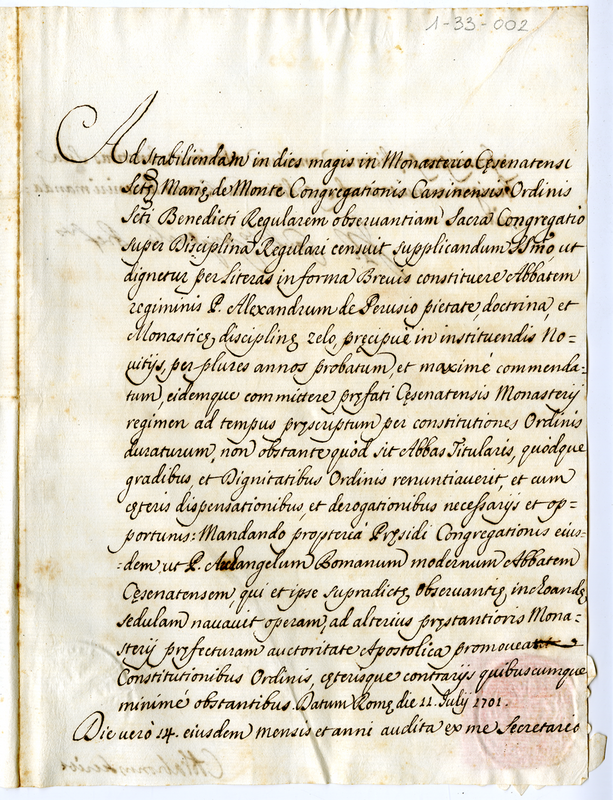 1-33-002
Ad stabiliendam in dies magis in Monasterio Cęsenatensi
Sctę Marię de Monte Congregationis Casinensis Ordinis
Scti Benedicti Regularem observantiam Sacra Congregatio
super Disciplina Regulari censuit supplicandum SSmo, ut
dignetur per literas in forma Brevis constituere Abbatem
regiminis P. Alexandrum de Perusio pietate, doctrina, et
Monasticę disciplinę zelo, pręcipuè in instituendis No=
vitijs, per plures annos probatum, et maximé commenda=
tum, eidemque committere pręfati Cęsenatensis Monasterij
regimen ad tempus pręscriptum per constitutiones Ordinis
duraturum, non obstante quòd sit Abbas Titularis, quodque
gradibus, et Dignitatibus Ordinis renuntiaverit, et cum
cęteris dispensationibus, et derogationibus necessarijs et op=
portunis: Mandando proptereà Pręsidi Congregationis eius=
=dem, ut P. Archangelum Romanum modernum Abbatem
Cęsenatensem, qui et ipse supradictę observantię inchoandę
sedulam navavit operam, ad alterius pręstantioris Mona=
sterij pręfecturam auctoritate Apostolica promoveat
Constitutionibus Ordinis, cęterisque contrarijs quibuscumque
minimé obstantibus. Datum Romę die 11. Julij 1701.
Die verò 14. eiusdem Mensis et anni audita ex me Secretario